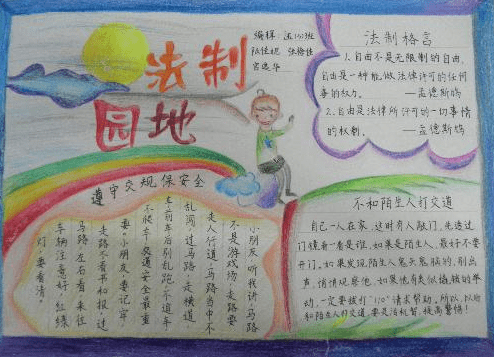 法制
园地
编辑:
法制格言
1.自由不是无限制的自由,
自由是一种能做法律许可的任何
事的权力。 —孟德斯鸠
2.自由是法律所许可的一切事情
的权利。 —孟德斯鸠
遵守交规保安全
小朋友听我讲,马路
不是游戏场,走路要
走人行道,马路当中不
乱闯,过马路,走横道
车前车后别乱跑,不追车
不候车,交通安全最重
要。小朋友,要记牢,
走路不看书和报,过
马路,左右看,来往
车辆注意好,红绿
灯,要看清,
不和陌生人打交道
自己一人在家,这时有人敲门,先透过
门镜看一看是谁,如果是陌生人,最好不要
开门。如果发现陌生人鬼头鬼脑的,别出
声,悄悄观察他,如果他有类似撬锁的举
动,一定要拨打"110"请求帮助。所以,以后
和陌生人打交道,要是活机智,提高警惕!